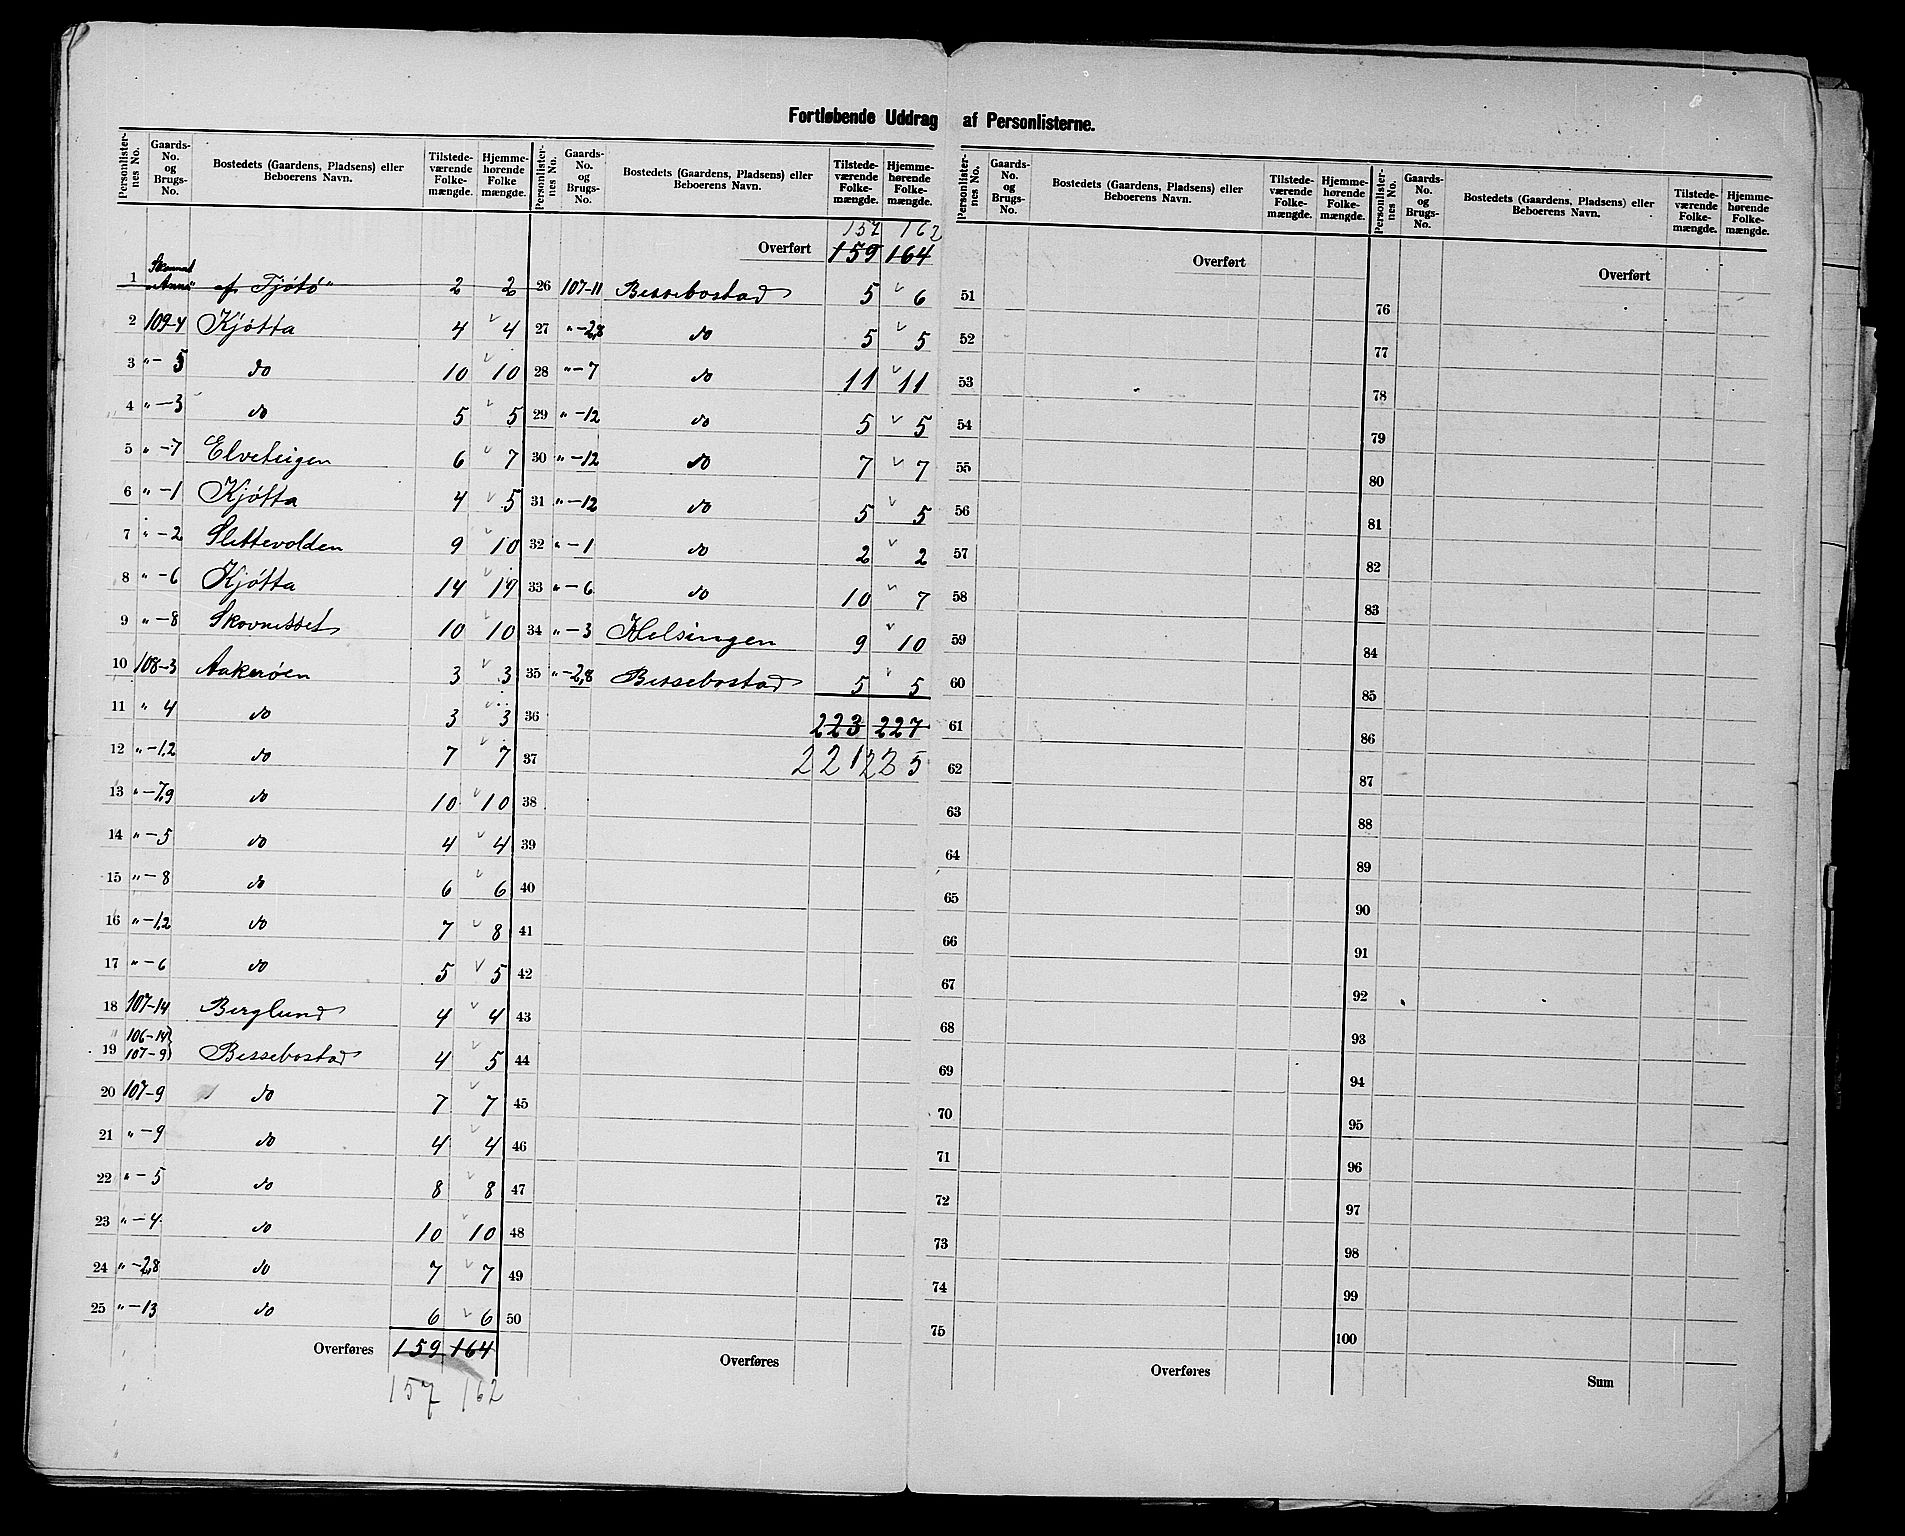 Fortløbende Uddrag af Personlisterne.
Personlister-nes No. | Gaards-No. og Brugs-No. | Bostedets (Gaardens, Pladsens) eller Beboerens Navn. | Tilstede-værende Folke-mængde. | Hjemme-hørende Folke mængde.
1 Skonnert "Anna" af Tjötö" 2 2
2 109-4 Kjøtta 4 4
3 "-5 do 10 10
4 "-3 do 5 5
5 "-7 Elveteigen 6 7
6 "-1 Kjøtta 4 5
7 "-2 Slettevolden 9 10
8 "-6 Kjøtta 14 19
9 "-8 Skovnesset 10 10
10 108-3 Aakerøen 3 3
11 " 4 do 3 3
12 "-1,2 do 7 7
13 "-7,9 do 10 10
14 "-5 do 4 4
15 "-8 do 6 6
16 "-1,2 do 7 8
17 "-6 do 5 5
18 107-14 Berglund 4 4
19 106-14 107-9 Bessebostad 4 5
20 107-9 do 7 7
21 "-9 do 4 4
22 "-5 do 8 8
23 "-4 do 10 10
24 "-2,8 do 7 7
25 "-13 do 6 6
Overføres 159 164
157 162
Personlister-nes No. | Gaards-No. og Brugs-No. | Bostedets (Gaardens, Pladsens) eller Beboerens Navn. | Tilstede-værende Folke-mængde. | Hjemme-hørende Folke-mængde.
157 162
Overført 159 164
26 107-11 Bessebostad 5 6
27 "-2,8 do 5 5
28 "-7 do 11 11
29 "-12 do 5 5
30 "-12 do 7 7
31 "-12 do 5 5
32 "-1 do 2 2
33 "-6 do 10 7
34 "-3 Helsingen 9 10
35 "-2,8 Bessebostad 5 5
36 223 227
37 221 225
38
39
40
41
42
43
44
45
46
47
48
49
50
Overføres
Personlister-nes No. | Gaards-No. og Brugs-No. | Bostedets (Gaardens, Pladsens) eller Beboerens Navn. | Tilstede-værende Folke-mængde. | Hjemme-hørende Folke-mængde.
Overført
51
52
53
54
55
56
57
58
59
60
61
62
63
64
65
66
67
68
69
70
71
72
73
74
75
Overføres
Personlister-nes No. | Gaards-No. og Brugs-No. | Bostedets (Gaardens, Pladsens) eller Beboerens Navn. | Tilstede-værende Folke-mængde. | Hjemme-hørende Folke-mængde.
Overført
76
77
78
79
80
81
82
83
84
85
86
87
88
89
90
91
92
93
94
95
96
97
98
99
100
Sum